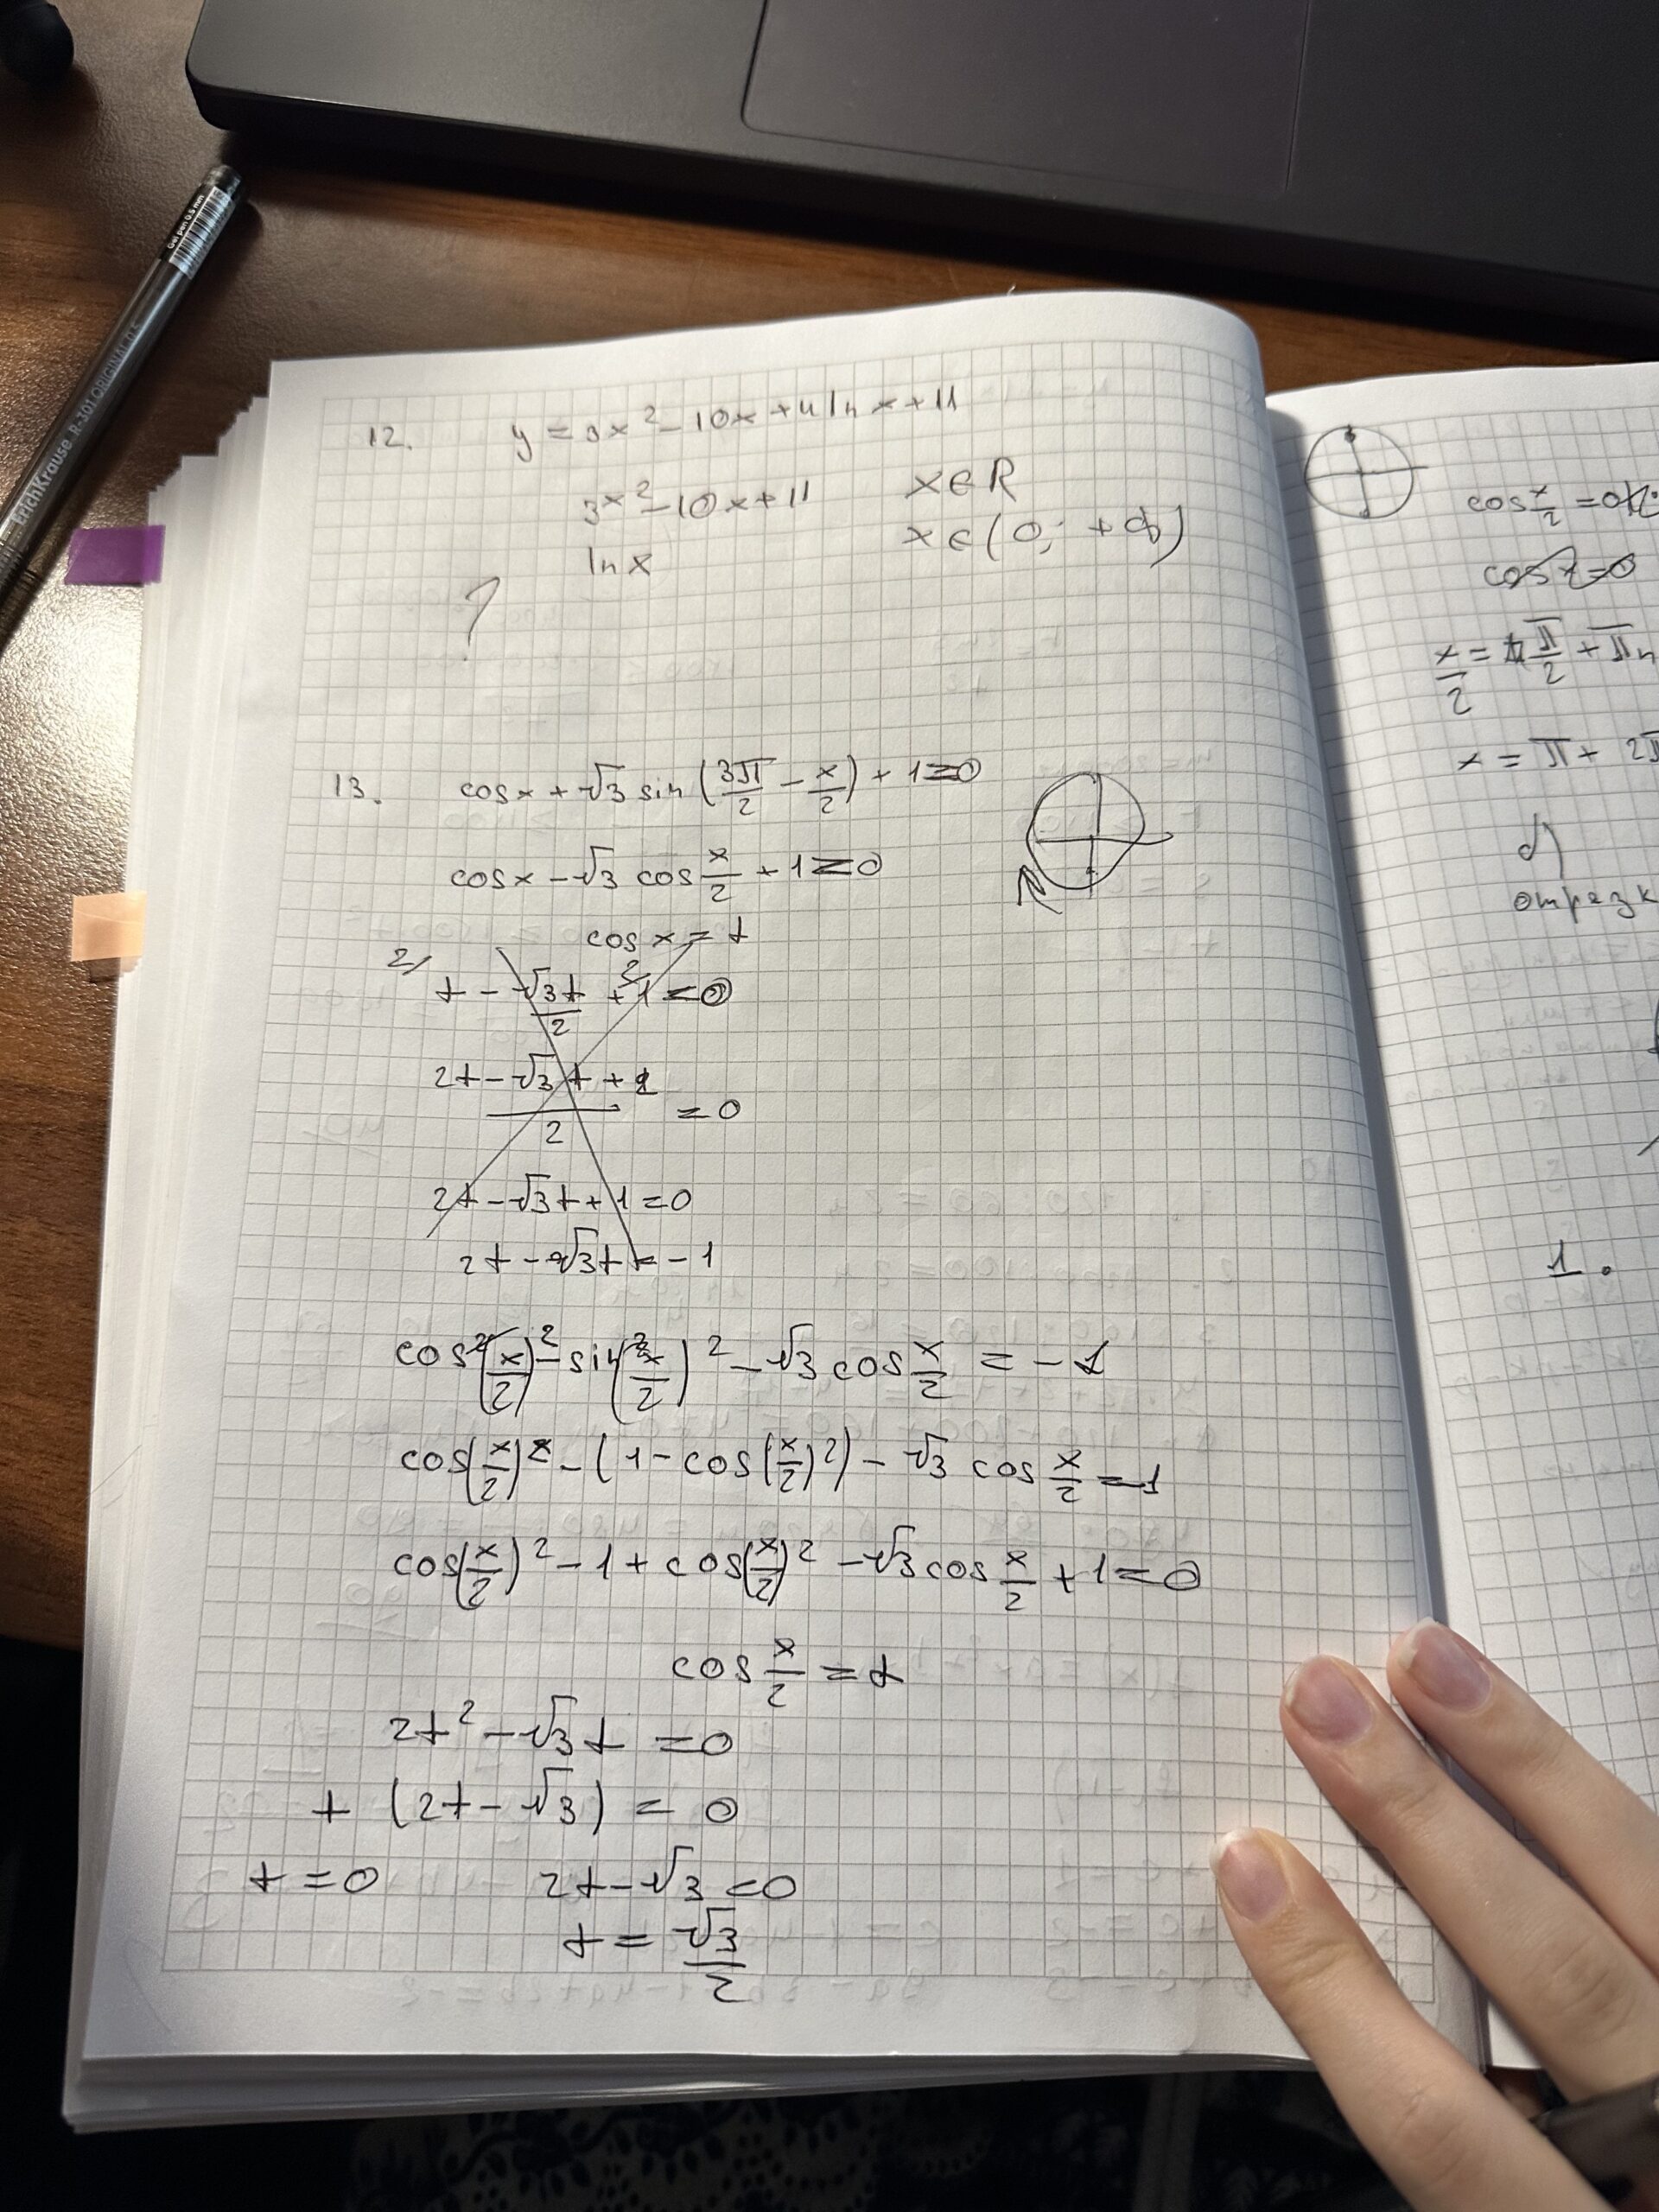 Gel pen 0.5 mm
ErichKrause R-301 ORIGINAL 0.5
12. y = 3x² - 10x + 4 ln x + 11
3x² - 10x + 11 x ∈ R
ln x x ∈ (0; +∞)
?
13. cos x + √3 sin (3π/2 - x/2) + 1 = 0
cos x - √3 cos x/2 + 1 = 0
cos x = t
2/ t - √3t/2 + 1 = 0
(2t - √3t + 2)/2 = 0
2t - √3t + 1 = 0
2t - √3t = -1
cos(x/2)² - sin(x/2)² - √3 cos x/2 = -1
cos(x/2)² - (1 - cos(x/2)²) - √3 cos x/2 = -1
cos(x/2)² - 1 + cos(x/2)² - √3 cos x/2 + 1 = 0
cos x/2 = t
2t² - √3t = 0
t (2t - √3) = 0
t = 0 2t - √3 = 0
t = √3/2
cos x/2 = 0
cos t = 0
x/2 = π/2 + πn
x = π + 2π
отрезк
1.